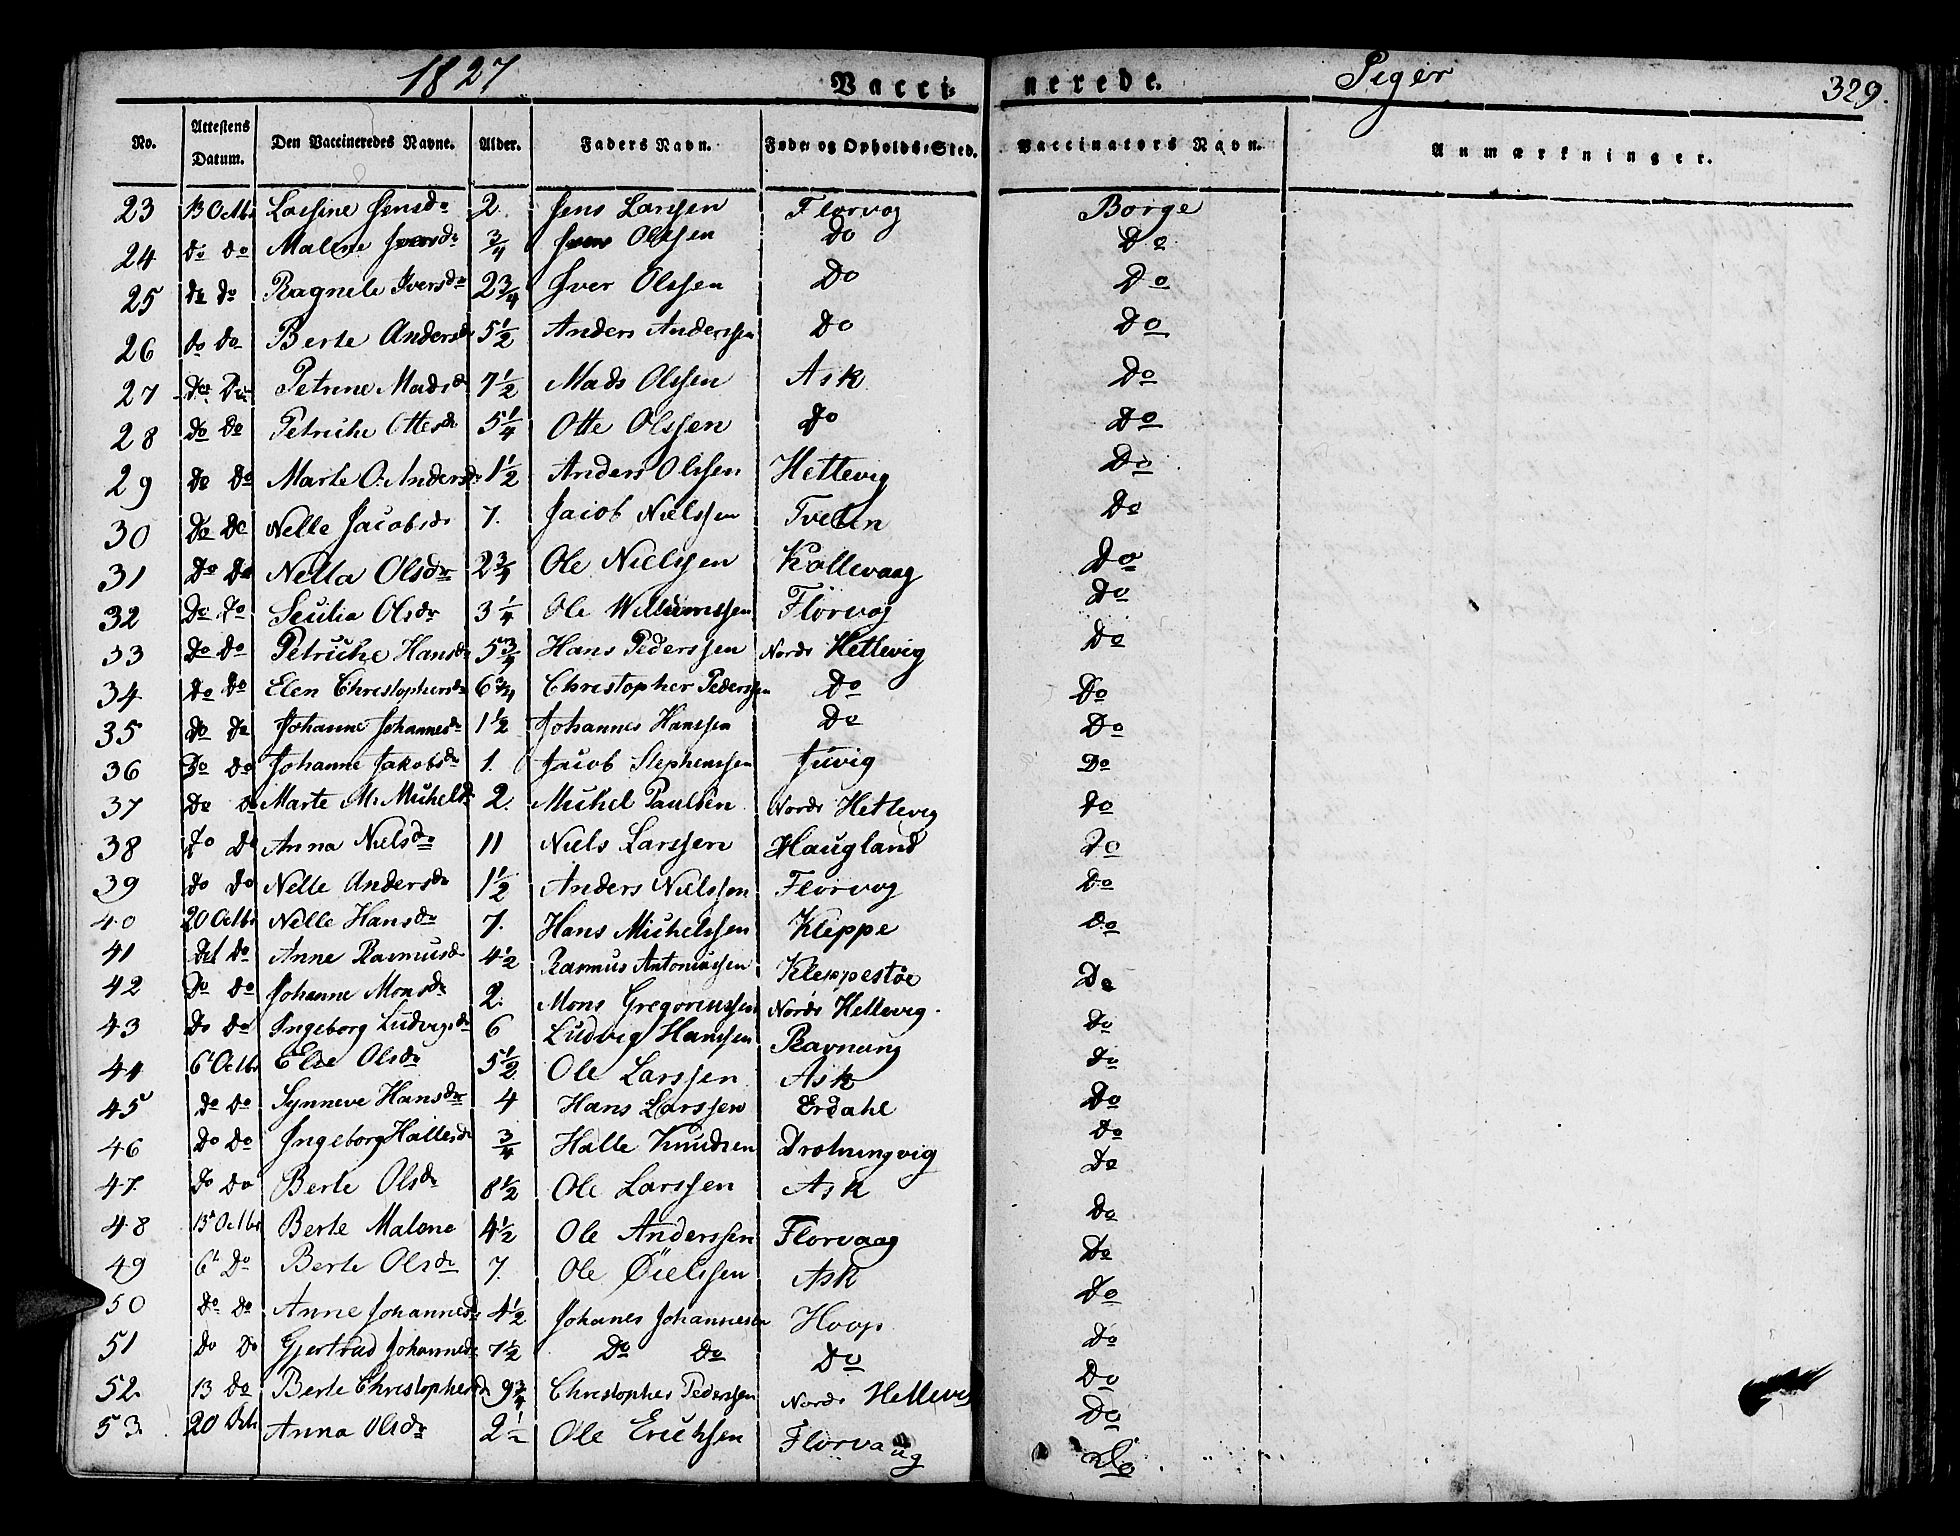 1827 Vacci- nerede. Piger 329.
No. Attestens Datum. Den Vaccineredes Navne. Alder. Faders Navn. Føde- og Opholds-Sted. Vaccinators Navn. Anmærkninger.
23 13 Octbr Lassine Jensdr 2. Jens Larssen Florvog Borge
24 do do Malene Iversdr 3/4 Iver Olssen Do Do
25 do do Ragnele Iversdr 2 3/4 Iver Olssen Do Do
26 do do Berte Andersdr 5 1/2 Anders Anderssen Do Do
27 Do Do Petrine Madsdr 7 1/2 Mads Olssen Ask Do
28 Do Do Petriche Ottesdr 5 1/4 Otte Olssen Do Do
29 Do Do Marte O. Andersdr 1 1/2 Anders Olssen Hettevig Do
30 Do Do Nelle Jacobsdr 7. Jacob Nielssen Tveten Do
31 Do Do Nella Olsdr 2 3/4 Ole Nielssen Kollevaag Do
32 Do Do Secilia Olsdr 3 1/4 Ole Willumssen Florvog Do
33 Do Do Petriche Hansdr 5 3/4 Hans Pederssen Nordr Hettevig Do
34 Do Do Elen Christophersdr 6 3/4 Christopher Pederssen Do Do
35 Do Do Johanne Johannesdr 1 1/2 Johannes Hanssen Do Do
36 Do Do Johanne Jakobsdr 1. Jacob Stephenssen Juvig Do
37 Do D Marte M. Michelsdr 2. Michel Paulsen Nordr Hetlevig Do
38 Do Do Anna Nielsdr 11 Niels Larssen Haugland Do
39 Do Do Nelle Andersdr 1 1/2 Anders Nielssen Florvog Do
40 20 Octbr Nelle Hansdr 7. Hans Michelssen Kleppe Do
41 Do Anne Rasmusdr 4 1/2 Rasmus Antoniussen Kleppestøe Do
42 Do Do Johanne Monsdr 2. Mons Gregoriussen Nordr Hettevig. Do
43 Do Do Ingeborg Ludvigsdr 6 Ludvig Hanssen Ravnang Do
44 6t Octbr Else Olsdr 5 1/2 Ole Larssen Ask Do
45 Do Do Synneve Hansdr 4 Hans Larssen Erdahl Do
46 Do Do Ingeborg Hallesdr 3/4 Halle Knudsen Drotningvig Do
47. Do Do Berte Olsdr 8 1/2 Ole Larssen Ask Do
48 13t Octbr Berte Malene 4 1/2 Ole Anderssen Florvaag Do
49 6t Do Berte Olsdr 7. Ole Øielssen Ask Do
50 Do Do Anne Johannesdr 4 1/2 Johanes Johannesen Hoop Do
51 Do Do Gjertrud Johannesdr 7 1/2 Do Do Do Do
52. 13 Do Berte Christophersdr 9 3/4 Christopher Pederssen Nordr Hettevig Do
53. 20 Oct Anna Olsdr 2 1/2 Ole Erichsen Florvaug Do